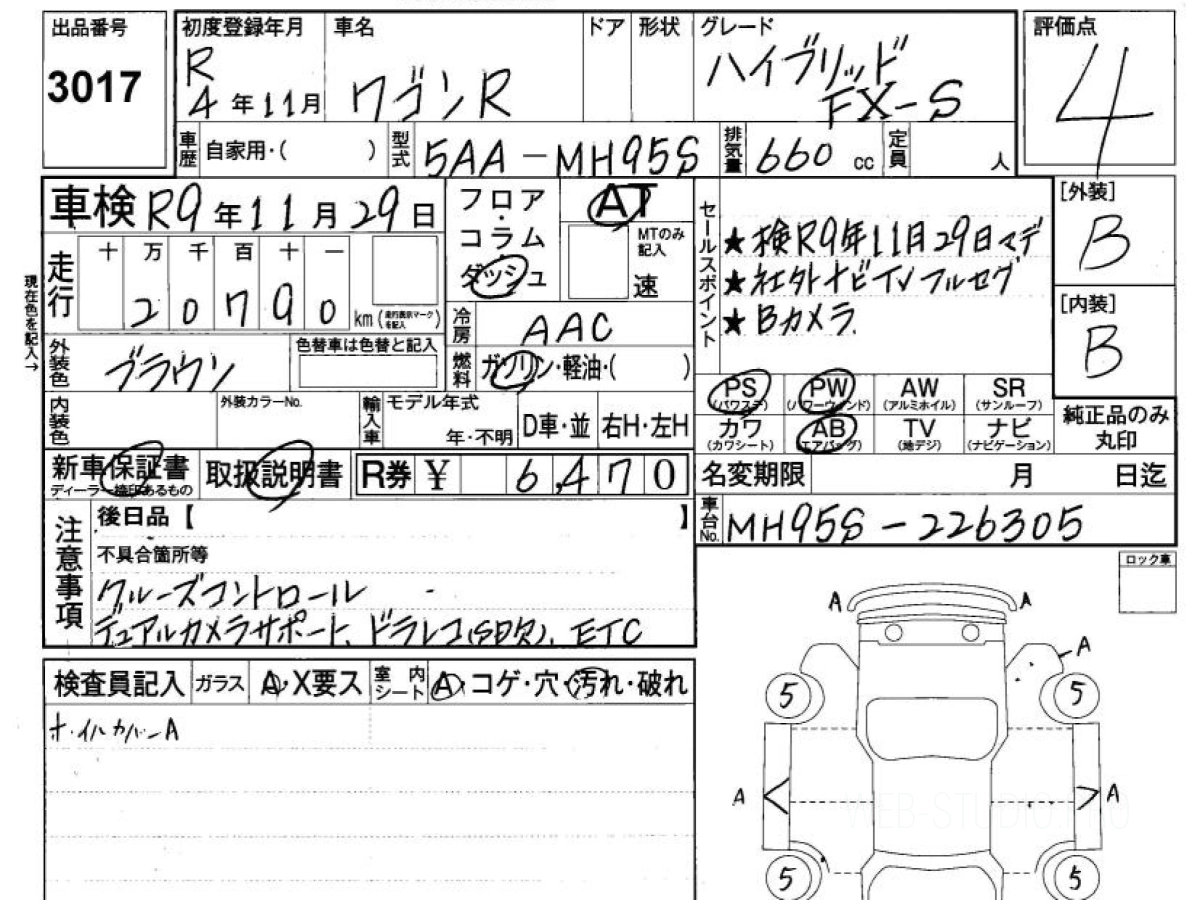 出品番号
3017
初度登録年月
R
4年11月
車名
ワゴンR
ドア
形状
グレード
ハイブリッド
FX-S
評価点
4
車歴
自家用・( )
型式
5AA-MH95S
排気量
660cc
定員
人
車検 R9年11月29日
フロア・コラム・ダッシュ
AT
MTのみ記入
速
セールスポイント
★検R9年11月29日マデ
★社外ナビTVフルセグ
★Bカメラ
[外装]
B
[内装]
B
現在色を記入→
走行
十 万 千 百 十 一
20790km(走行表示マークを記入)
冷房
AAC
燃料
ガソリン・軽油・( )
外装色
ブラウン
色替車は色替と記入
内装色
外装カラーNo.
輸入車
モデル年式
年・不明
D車・並
右H・左H
PS (パワステ)
PW (パワーウィンド)
AW (アルミホイル)
SR (サンルーフ)
カワ (カワシート)
AB (エアバッグ)
TV (地デジ)
ナビ (ナビゲーション)
純正品のみ
丸印
新車保証書
ディーラー捺印あるもの
取扱説明書
R券 ¥ 6,470
名変期限 月 日迄
車台No. MH95S-226305
注意事項
後日品【 】
不具合箇所等
クルーズコントロール
デュアルカメラサポート、ドラレコ(SD欠)、ETC
ロック車
検査員記入
ガラス
A・X要ス
室内シート
A・コゲ・穴・汚れ・破れ
ホイルカバーA
A A
A
5 5
A A
WEB-STUDIO.PRO
5 5